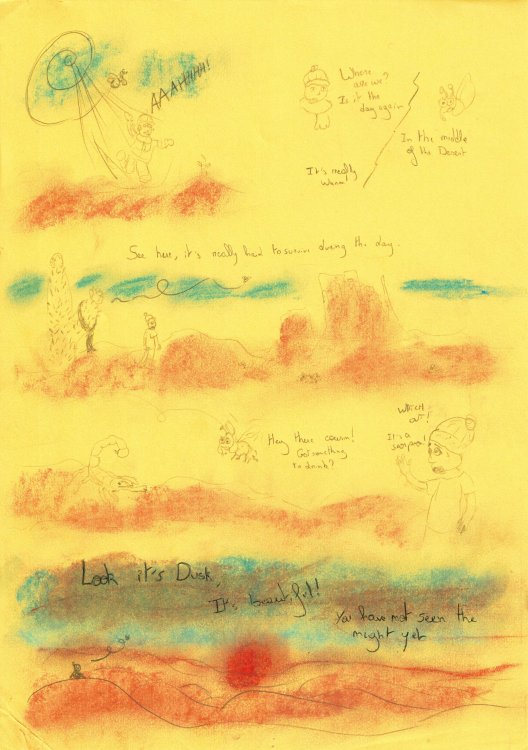 AAAHHHH!
Where
are we?
Is it the
day again
It's really
warm
In the middle
of the Desert
See here, it's really hard to survive during the day.
Hey there cousin!
Got something
to drink?
Watch
out!
It's a
scorpion!
Look it's Dusk,
It's beautiful!
You have not seen the
night yet